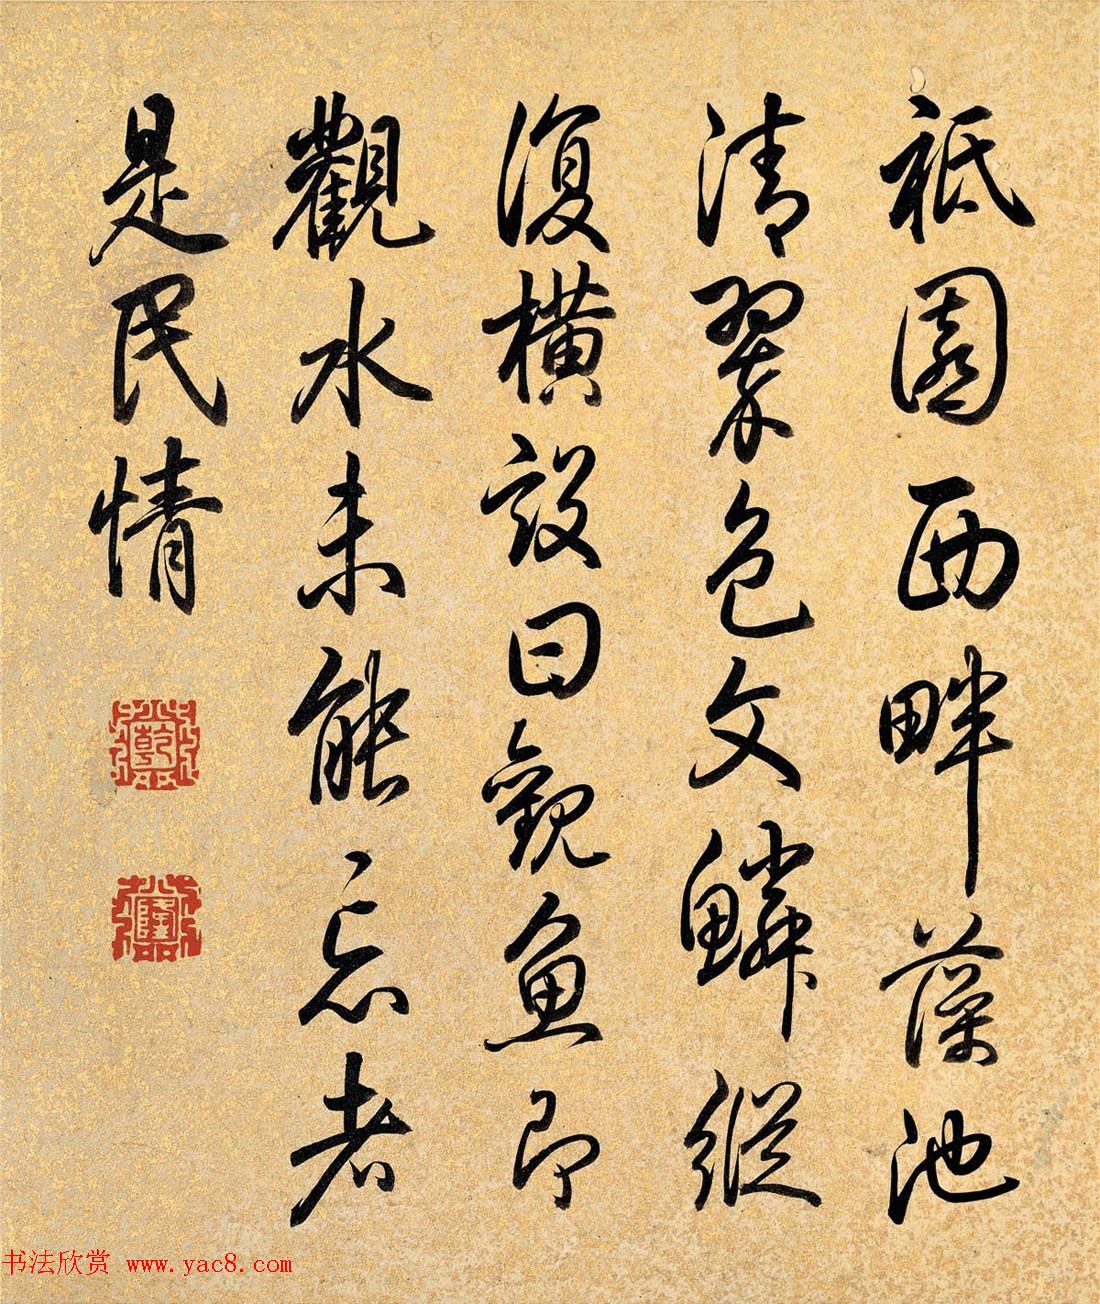 祗園西畔藻池
清翠色文鱗縱
復橫設曰觀魚即
觀水未能忘者
是民情
乾
隆
书法欣赏 www.yac8.com